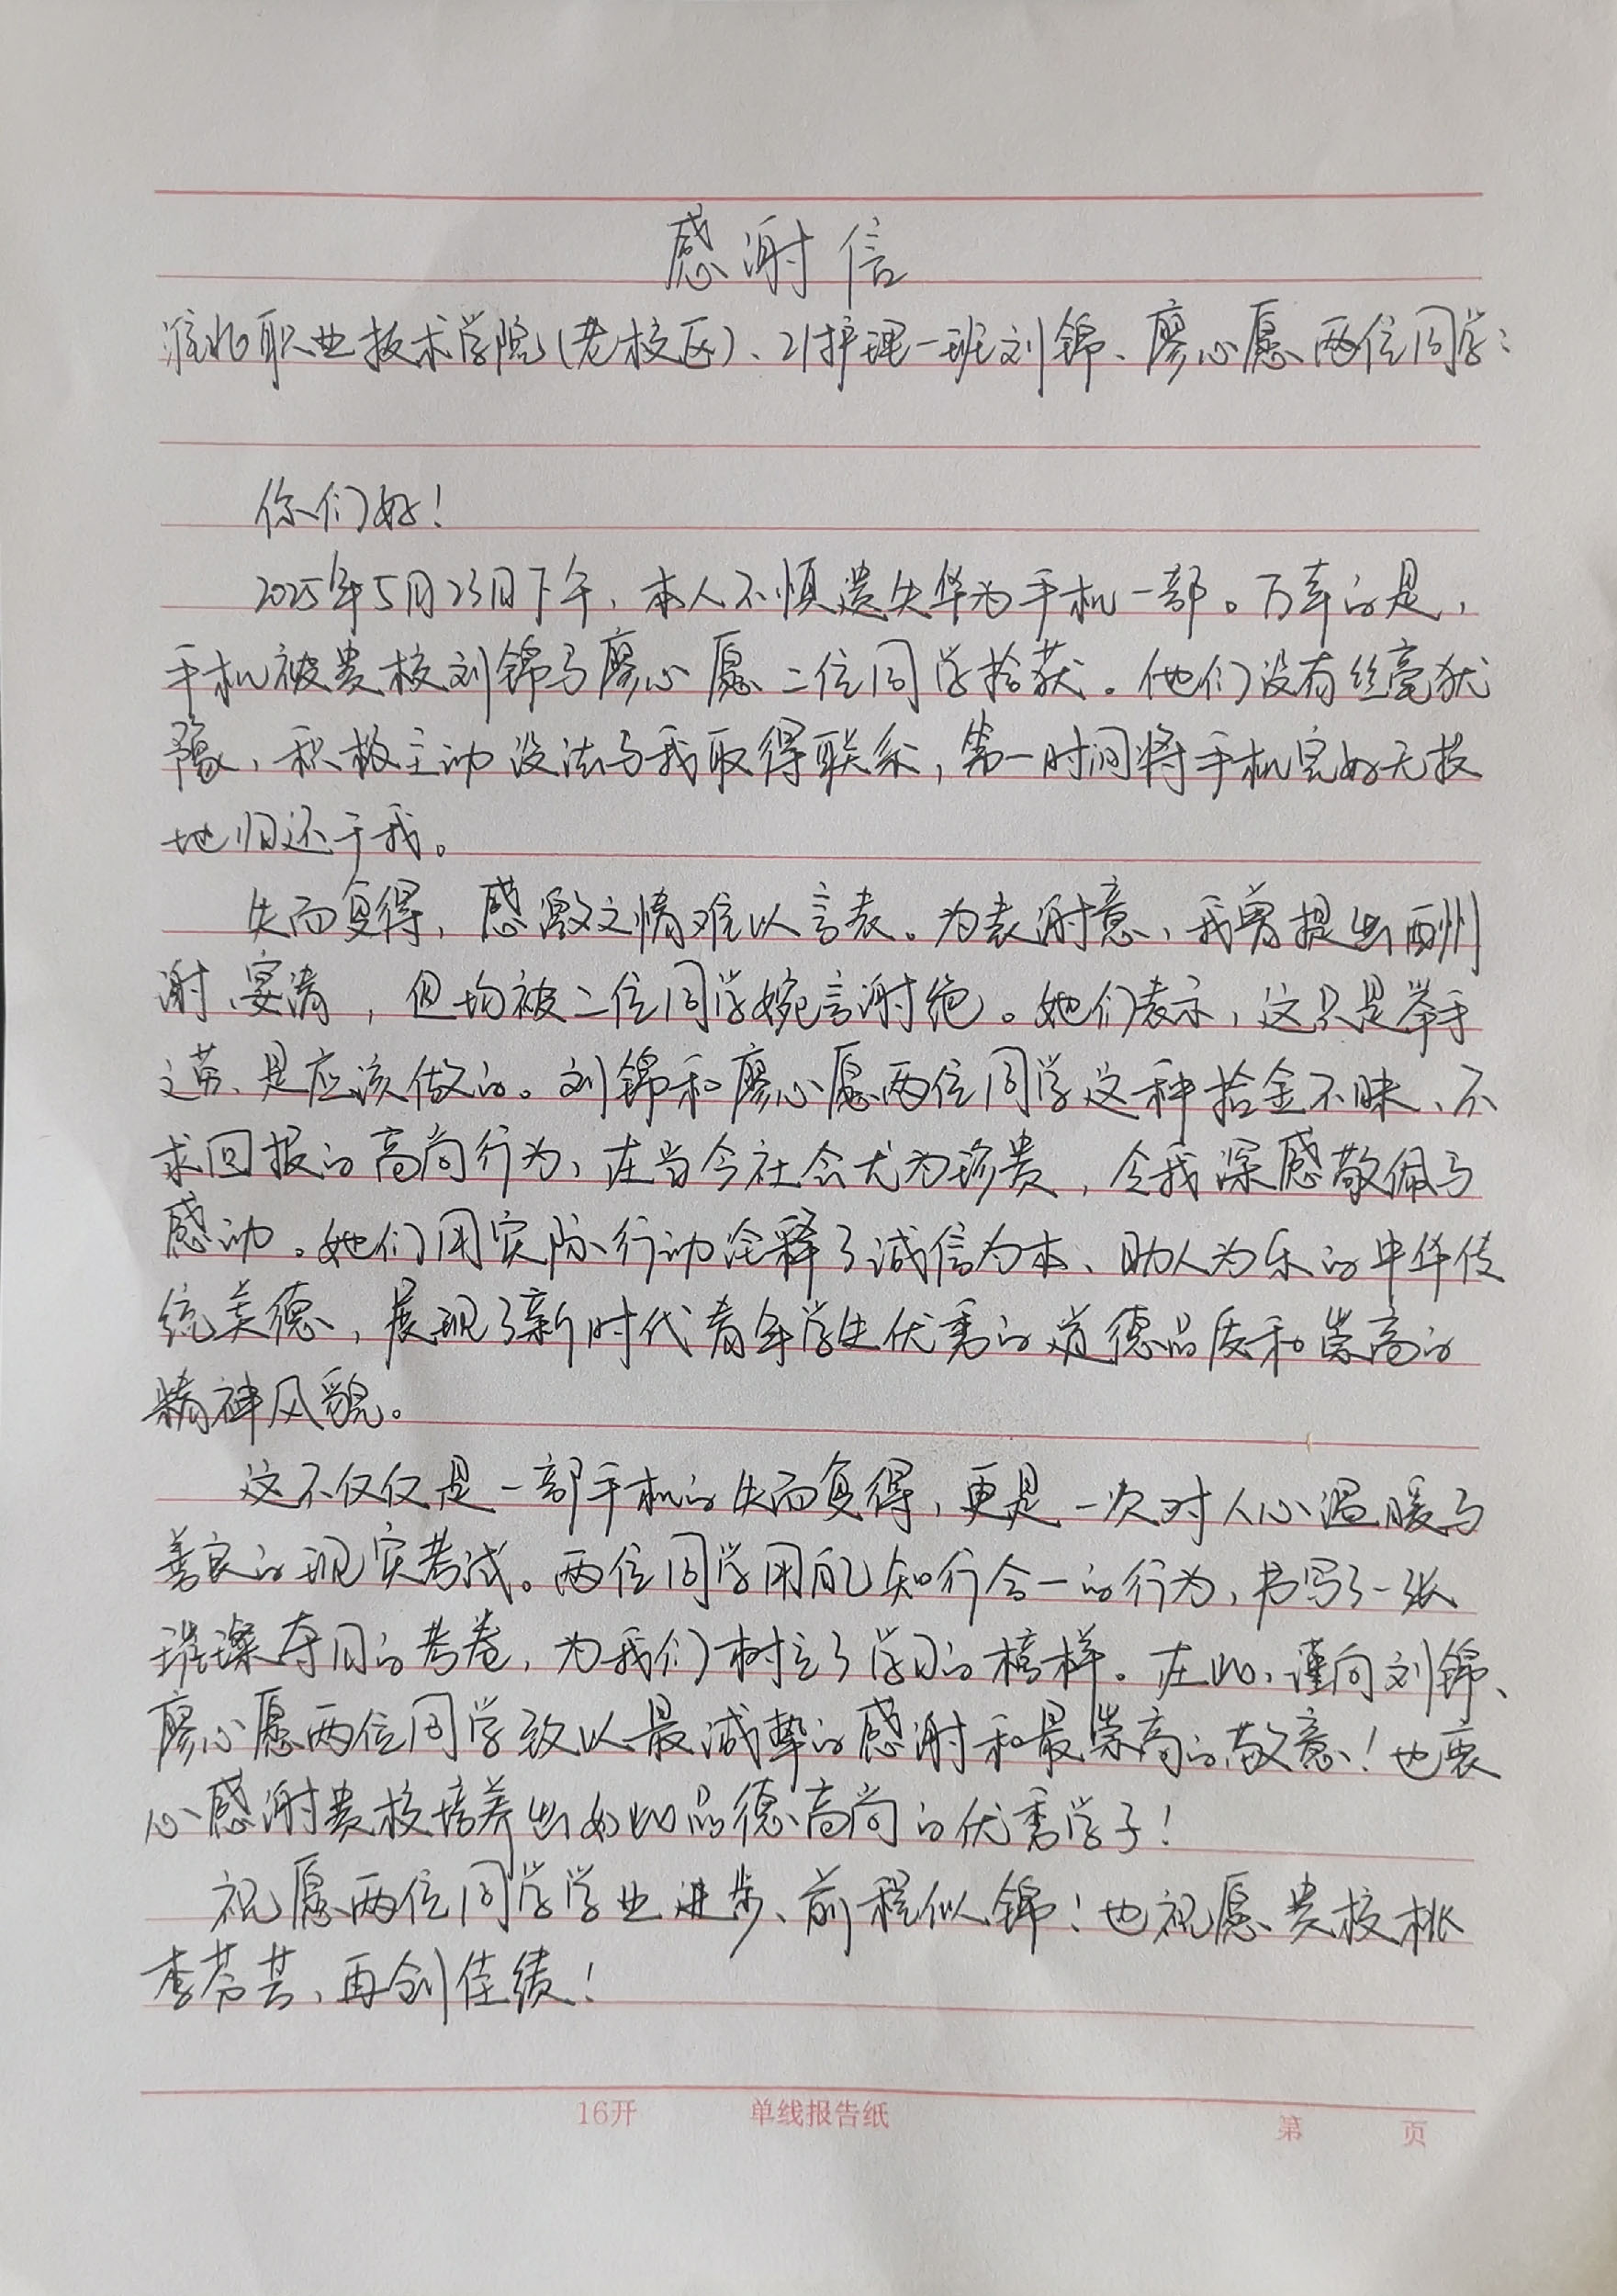 感谢信
淮北职业技术学院(老校区)、21护理一班刘锦、廖心愿两位同学:
你们好!
2025年5月23日下午,本人不慎遗失华为手机一部。万幸的是,
手机被贵校刘锦与廖心愿二位同学拾获。他们没有丝毫犹
豫,积极主动设法与我取得联系,第一时间将手机完好无损
地归还于我。
失而复得,感激之情难以言表。为表谢意,我曾提出酬
谢、宴请,但均被二位同学婉言谢绝。她们表示,这只是举手
之劳、是应该做的。刘锦和廖心愿两位同学这种拾金不昧、不
求回报的高尚行为,在当今社会尤为珍贵,令我深感敬佩与
感动。她们用实际行动诠释了诚信为本、助人为乐的中华传
统美德,展现了新时代青年学生优秀的道德品质和崇高的
精神风貌。
这不仅仅是一部手机的失而复得,更是一次对人心温暖与
善良的现实考试。两位同学用自己知行合一的行为,书写了一张
璀璨夺目的考卷,为我们树立了学习的榜样。在此,谨向刘锦、
廖心愿两位同学致以最诚挚的感谢和最崇高的敬意!也衷
心感谢贵校培养出如此品德高尚的优秀学子!
祝愿两位同学学业进步、前程似锦!也祝愿贵校桃
李芬芳、再创佳绩!
16开 单线报告纸 第 页